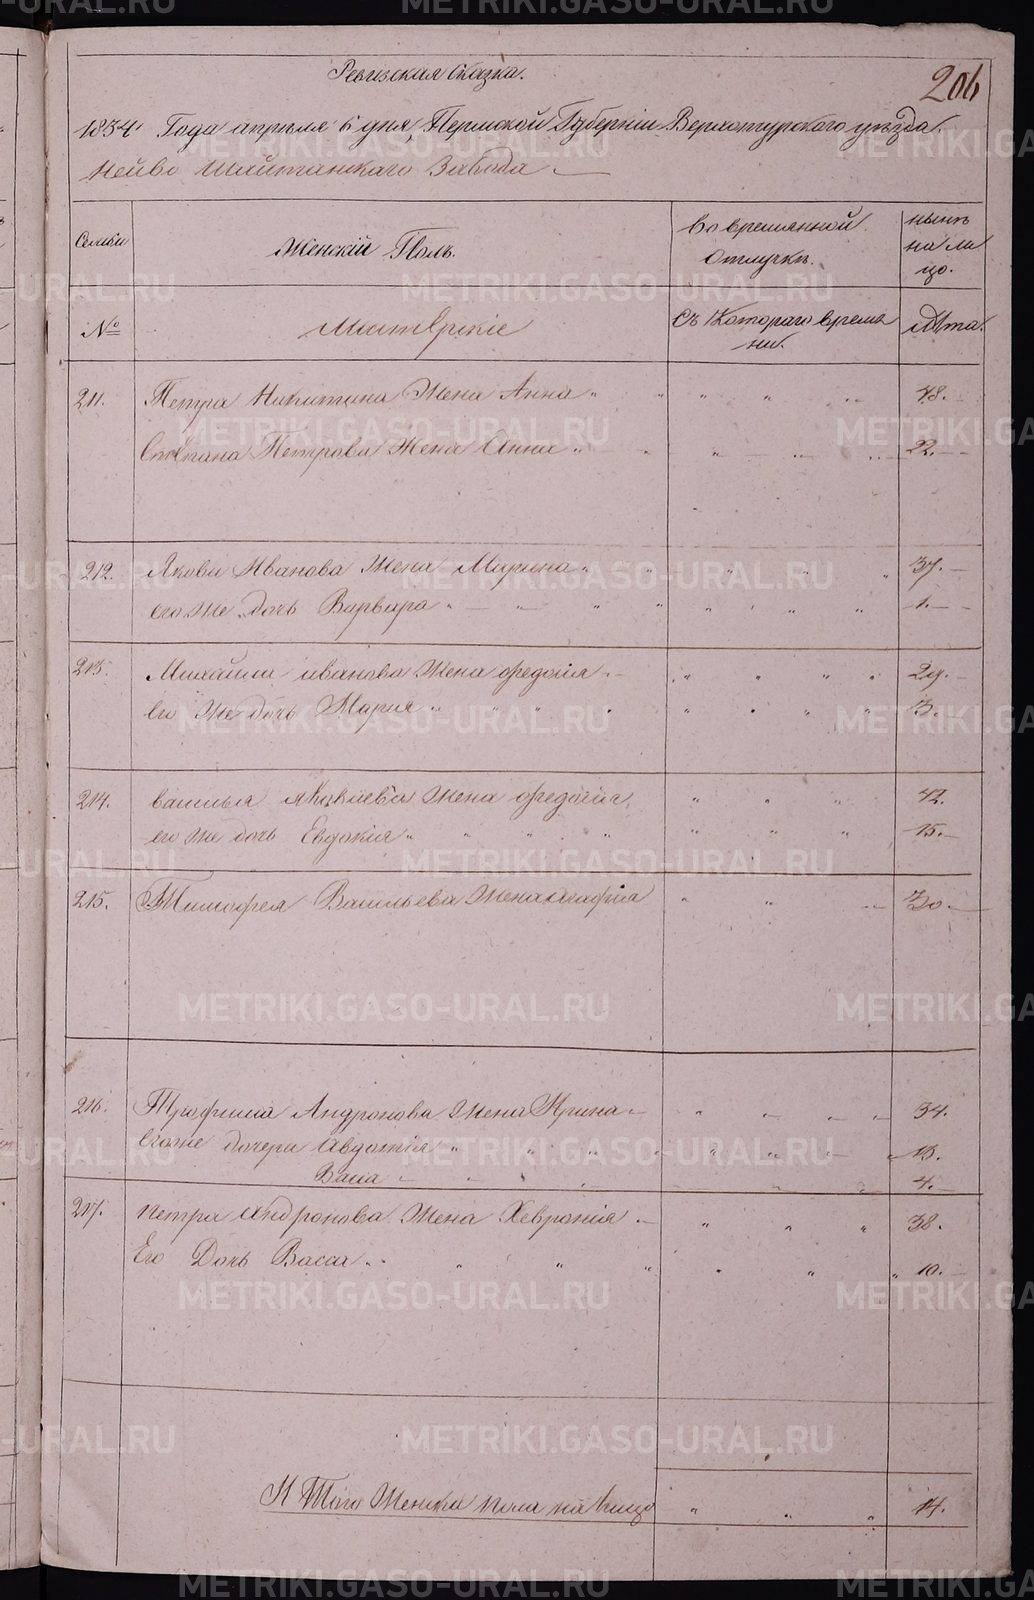 Ревизская сказка.
206
1834 Года апреля 6 дня, Пермской Губернии Верхотурского уезда.
Нейво Шайтанского Завода
Семьи
Женскій Полъ.
Во временной отлучке.
ныне на лицо.
№
Мастерскіе
Съ Котораго времени.
Лета.
211. Петра Никитина Жена Анна 48.
Степана Петрова Жена Анна 22.
212. Якова Иванова Жена Марина 37.
его же дочь Варвара 1.
213. Михайла иванова Жена федосія 29.
Его Же дочь Мария 3.
214. василья Яковлева Жена федосія 42.
его же дочь Евдокія 15.
215. Тимофея Васильева Жена Агафія 30.
216. Трофима Андронова Жена Ирина 34.
Его же дочери Авдотія 13.
Васа 4.
217. Петра андронова Жена Хеврония 38.
Его Дочь Васса 10.
И Того Женска пола на лицо 14.
METRIKI.GASO-URAL.RU